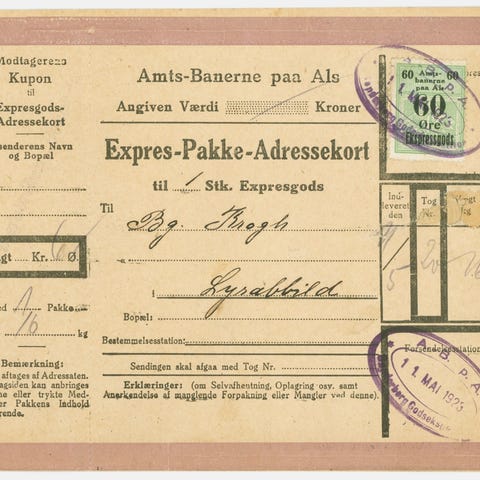 Modtagerens
Kupon
til
Expresgods-
Adressekort
senderens Navn
og Bopæl
gt Kr. Ø.
ed 1 Pakke
16 kg
Bemærkning:
aftages af Adressaten.
agsiden kan anbringes
ne eller trykte Med-
er Pakkens Indhold
rende.
Amts-Banerne paa Als
Angiven Værdi Kroner
Expres-Pakke-Adressekort
til 1 Stk. Expresgods
Til Bg. Krogh
i Lyrabbild
Bopæl:
Bestemmelsesstation:
Sendingen skal afgaa med Tog Nr.
Erklæringer: (om Selvafhentning, Oplagring osv. samt
Anerkendelse af manglende Forpakning eller Mangler ved denne).
60 Amts- 60
banerne
paa Als
60
Øre
Ekspressgods
A. B. P. A.
11. MAJ 1923
Ind-
leveret
den
Tog
Nr.
Vægt
kg
11/5
20
16
Forsendelsesstation
A. B. P. A.
11. MAJ 1923
Sønderborg Godseksp